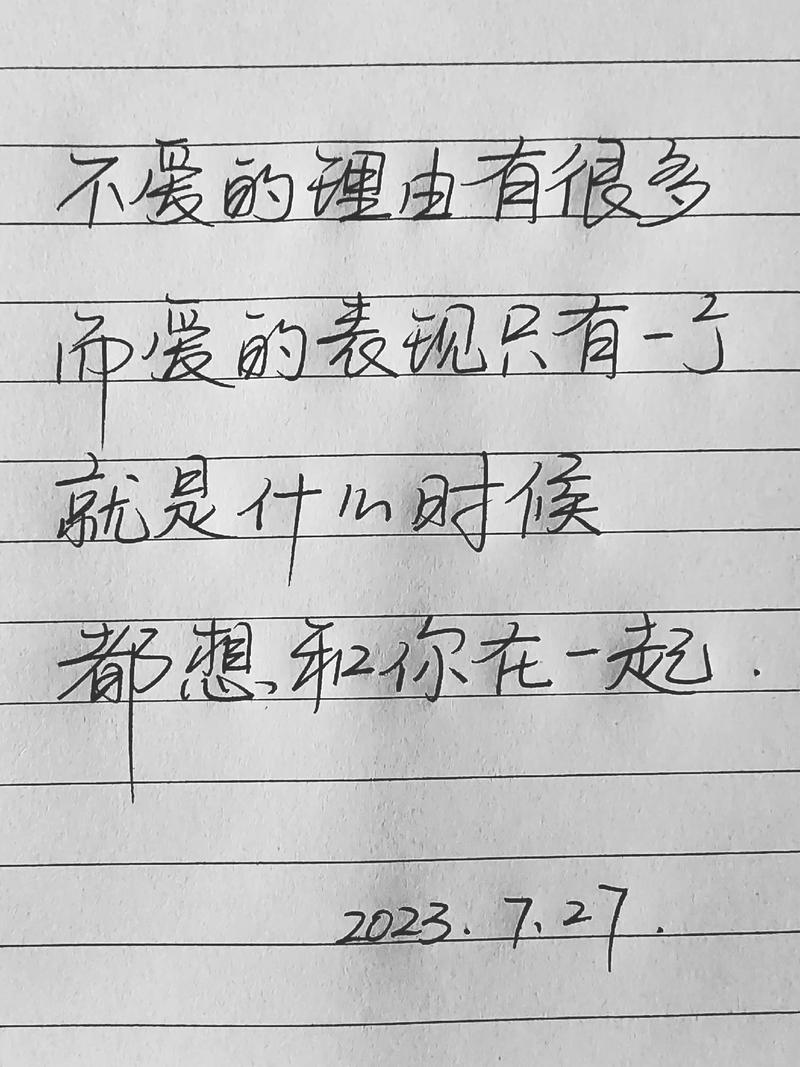 不爱的理由有很多
而爱的表现只有一个
就是什么时候
都想和你在一起.
2023.7.27.